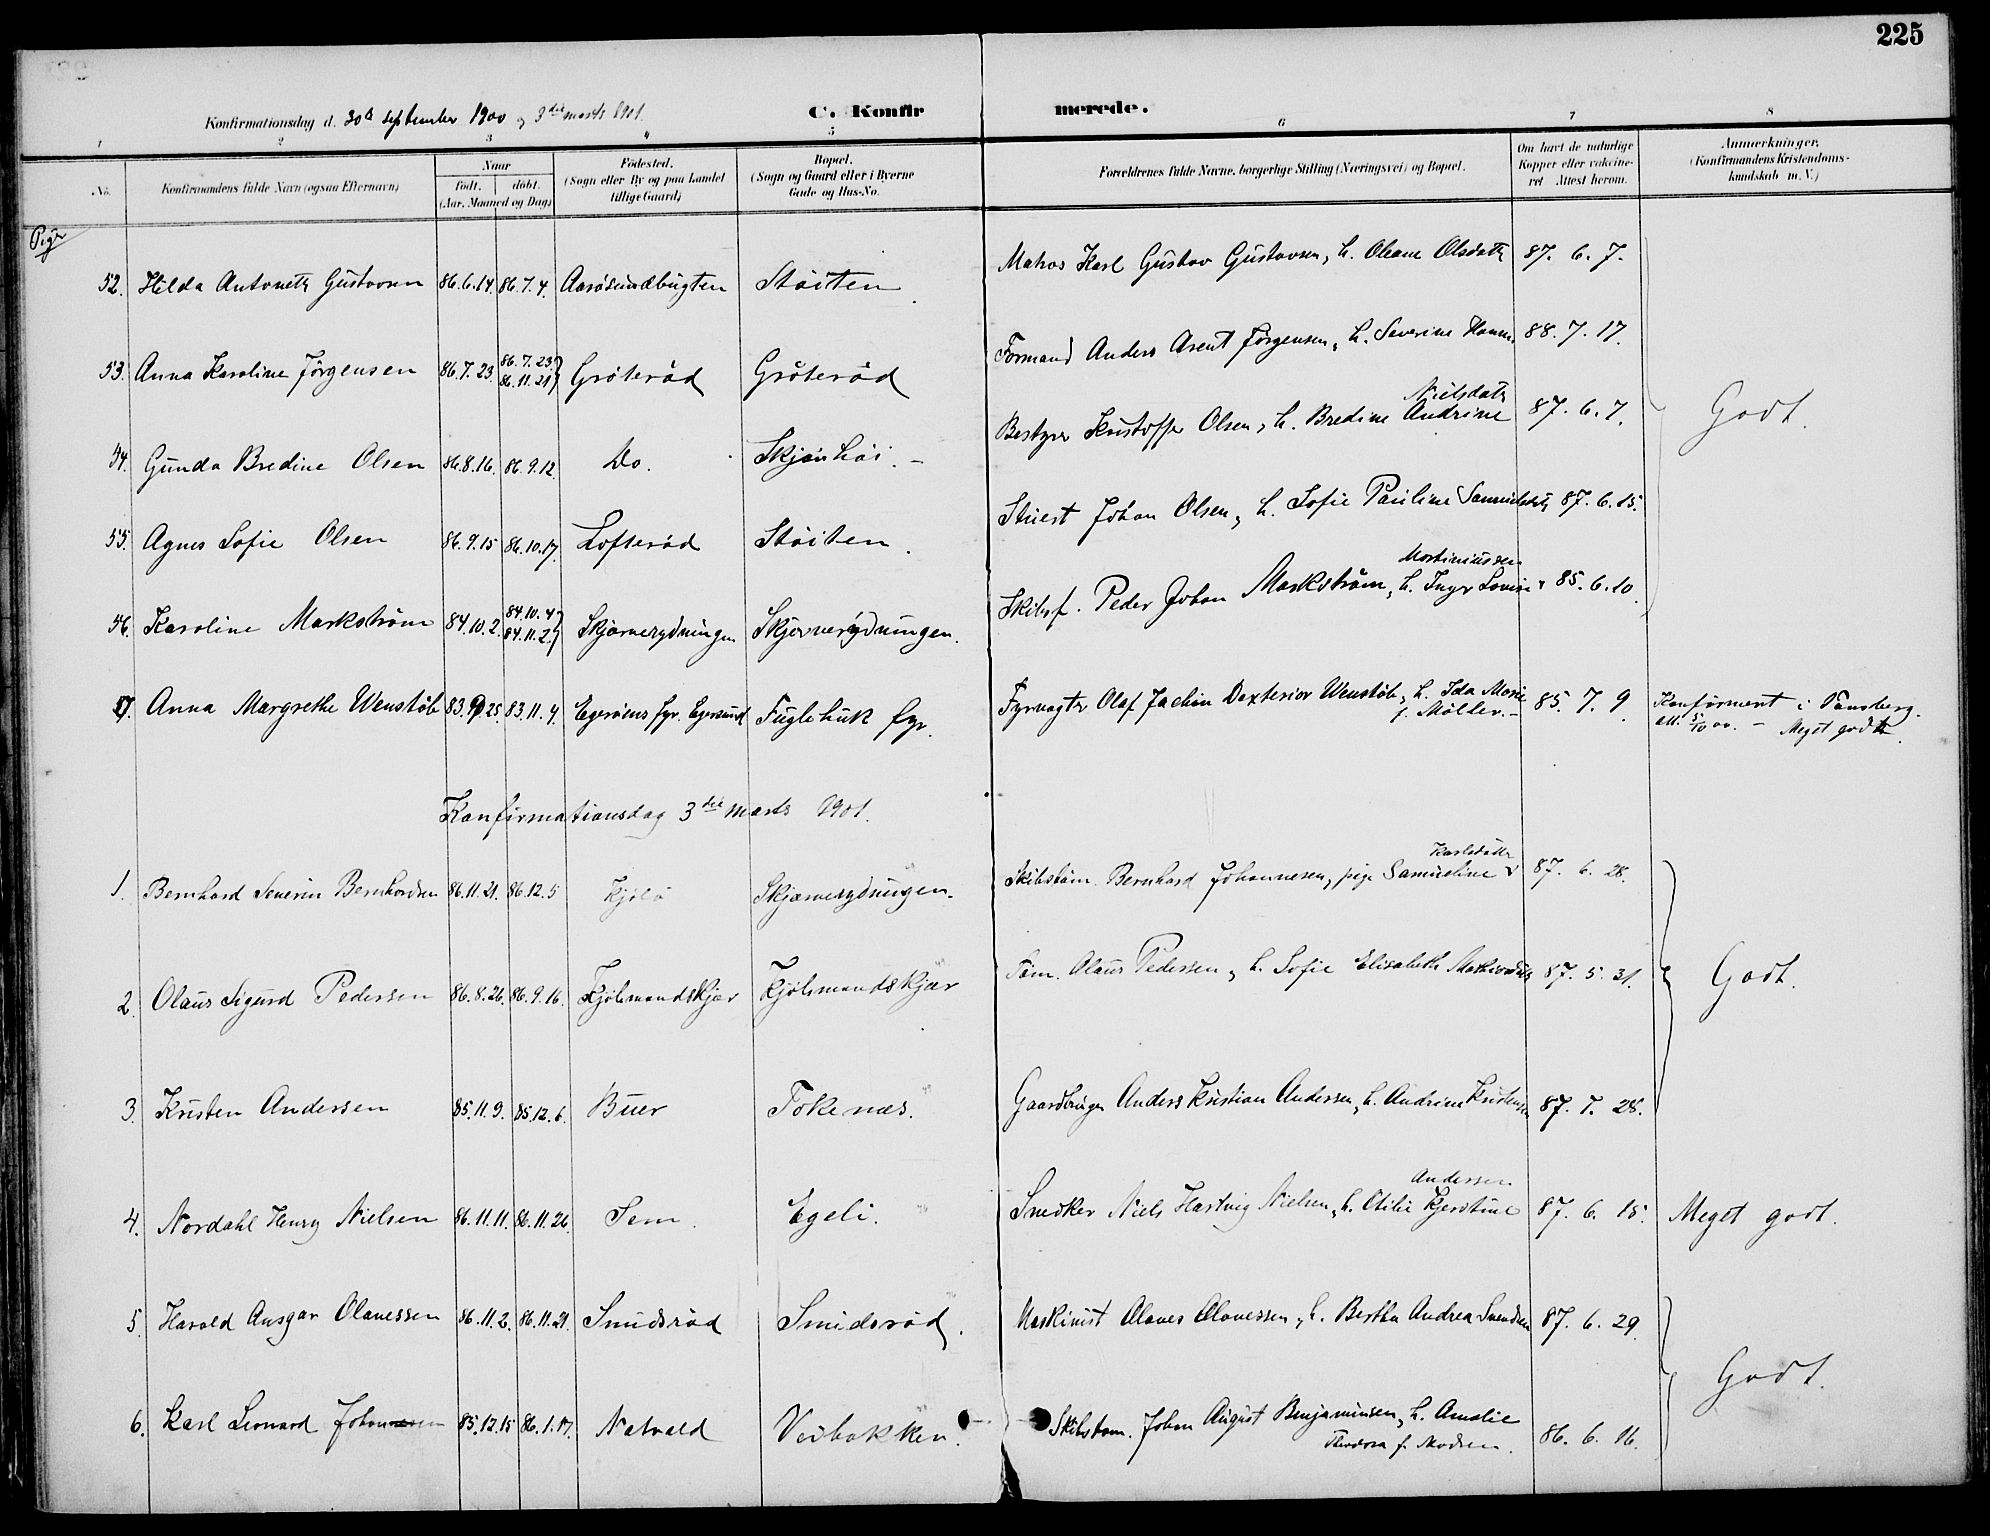 225
Konfirmationsdag d. 30te september 1900 og 3die marts 1901.
C. Konfirmerede.
1 2 3 4 5 6 7 8
No.
Konfirmandens fulde Navn (ogsaa Efternavn)
Naar
født. døbt.
(Aar. Maaned og Dag)
Fødested.
(Sogn eller By og paa Landet
tillige Gaard)
Bopæl.
(Sogn og Gaard eller i Byerne
Gade og Hus-No.
Forældrenes fulde Navne, borgerlige Stilling (Næringsvei) og Bopæl.
Om havt de naturlige
Kopper eller vaccine-
ret Attest herom.
Anmærkninger.
(Konfirmandens Kristendoms-
kundskab m.V.)
Piger
52. Hilda Antonette Gustavsen 86.6.14 86.7.4. Aarøsundbugten Støiten Matros Karl Gustav Gustavsen, h. Oleane Olsdatr 87. 6. 7.
53. Anna Karoline Jørgensen 86.7.23. 86.7.23. 86.11.21 Grøterød Grøterød Formand Anders Arent Jørgensen, h. Severine Hanna Nielsdatr 88. 7. 17.
54. Gunda Bredine Olsen 86.8.16. 86.9.12. Do. Skjønhøi. Bestyrer Kristoffer Olsen, h. Bredine Andrine 87. 6. 7. Godt.
55. Agnes Sofie Olsen 86.9.15 86.10.17. Lofterød Støiten. Stuert Johan Olsen, h. Sofie Pauline Samuelsdatr 87. 6. 15.
56. Karoline Markstrøm 84.10.2. 84.10.4 84.11.2. Skjærverydningen Skjærverydningen. Skibsf. Peder Johan Markstrøm, h. Inger Lovise Martiniussen 85. 6. 10
57. Anna Margrethe Wenstøb 83.9.25. 83.11.4. Egerøens fyr. Egersund Fuglehuk fyr. Fyrvogter Olaf Jachin Dexterior Wenstøb, h. Ida Marie f. Møller. 85. 7. 9. Konfirmeret i Tønsberg.
att. 5/10 00. Meget godt.
Konfirmationsdag 3die marts 1901.
1. Bernhard Severin Bernhardsen 86.11.21. 86.12.5 Kjølø Skjærverydningen. Skibstøm. Bernhard Johannesen, pige Samueline Karlsdatter 87. 6. 28.
2. Olaus Sigurd Pedersen 86.8.26. 86.9.16. Kjølsmandskjær Kjølsmandskjær Tøm. Olaus Pedersen, h. Sofie Elisabeth 87. 5. 31. Godt.
3. Kristen Andersen 85.11.9. 85.12.6. Buer Tokenæs. Gaardbruger Anders Kristian Andersen, h. Andrine Kristensen 87. 7. 28.
4. Nordahl Henry Nielsen 86.11.11. 86.11.26. Sem. Egeli. Snedker Niels Hartvig Nielsen, h. Otilie Kjerstine Andersen 87. 6. 15. Meget godt.
5. Harald Ansgar Olavessen 86.11.2. 86.11.21. Smidsrød Smidsrød. Maskinist Olaves Olavessen, h. Bertha Andrea Svendsen 87. 6. 29.
6. Karl Leonard Johannesen 85.12.15 86.1.17. Natvald Veibakken. Skibstøm. Johan August Benjaminsen, h. Amalie
Theodora f. Madsen. 86. 6. 16. Godt.